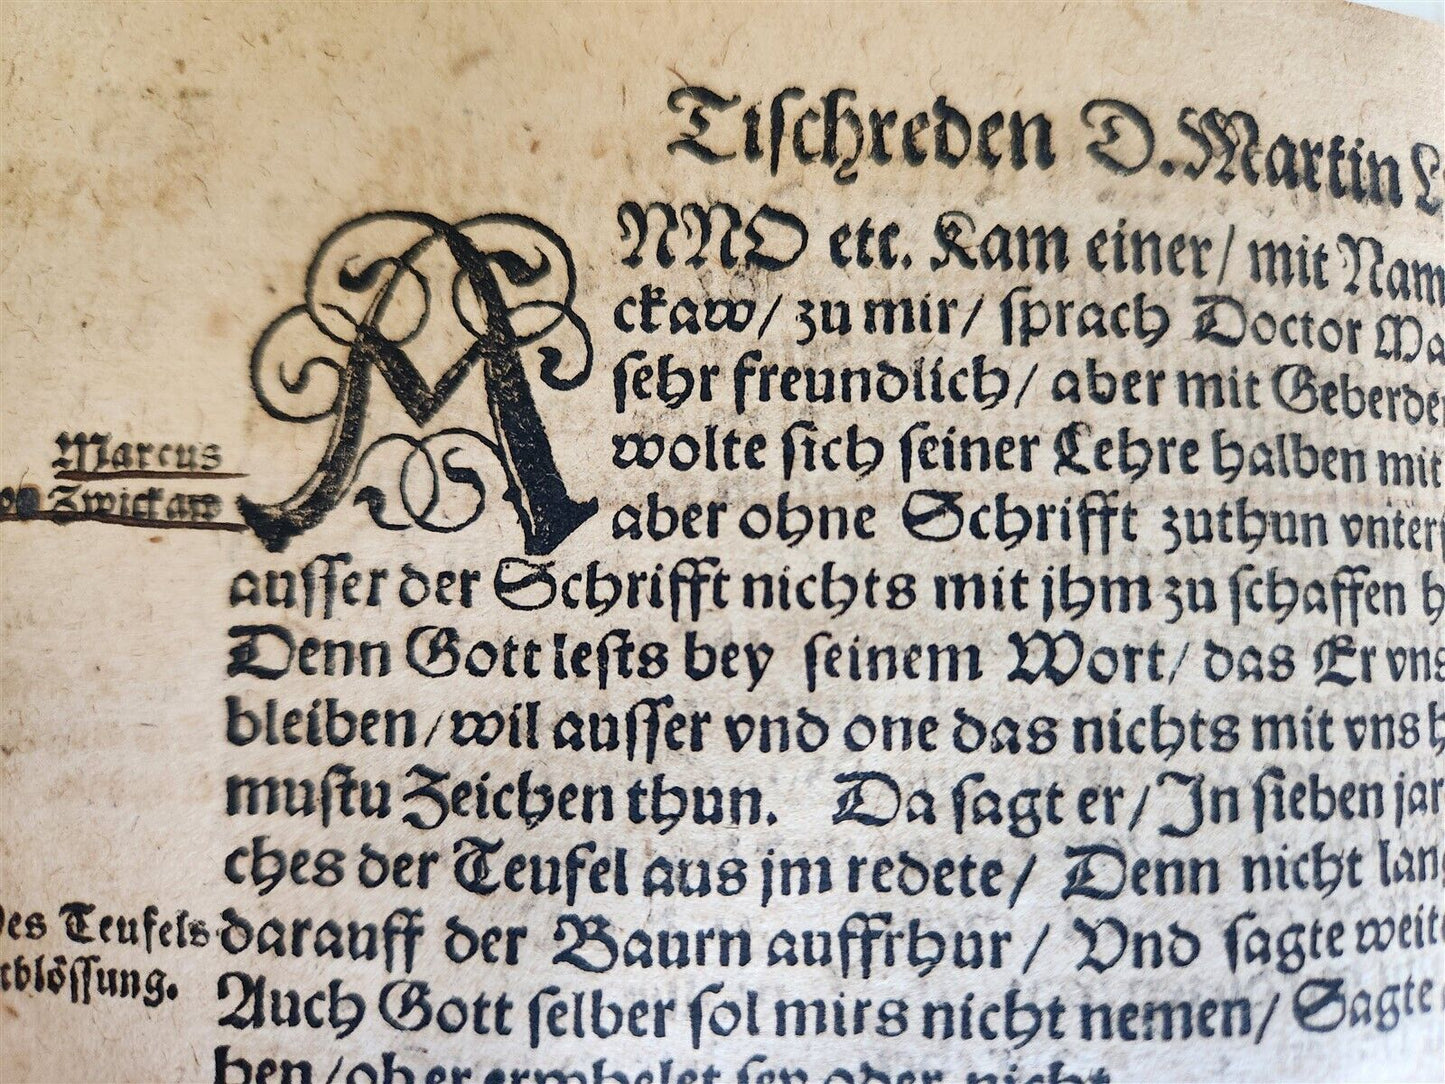 Tischreden D. Martin L
ANNO etc. Kam einer/ mit Nam
ckaw/ zu mir/ sprach Doctor Ma
sehr freundlich/ aber mit Geberde
Marcus
wolte sich seiner Lehre halben mit
Zwickaw
aber ohne Schrifft zuthun vnter
ausser der Schrifft nichts mit jhm zu schaffen h
Denn Gott lests bey seinem Wort/ das Er vns
bleiben/ wil ausser vnd one das nichts mit vns h
mustu Zeichen thun. Da sagt er/ In sieben jar
ches der Teufel aus jm redete/ Denn nicht lan
des Teufels
darauff der Baurn auffrhur/ Vnd sagte weit
blössung.
Auch Gott selber sol mirs nicht nemen/ Sagte
ben/ ob er erwhelet sey oder nicht